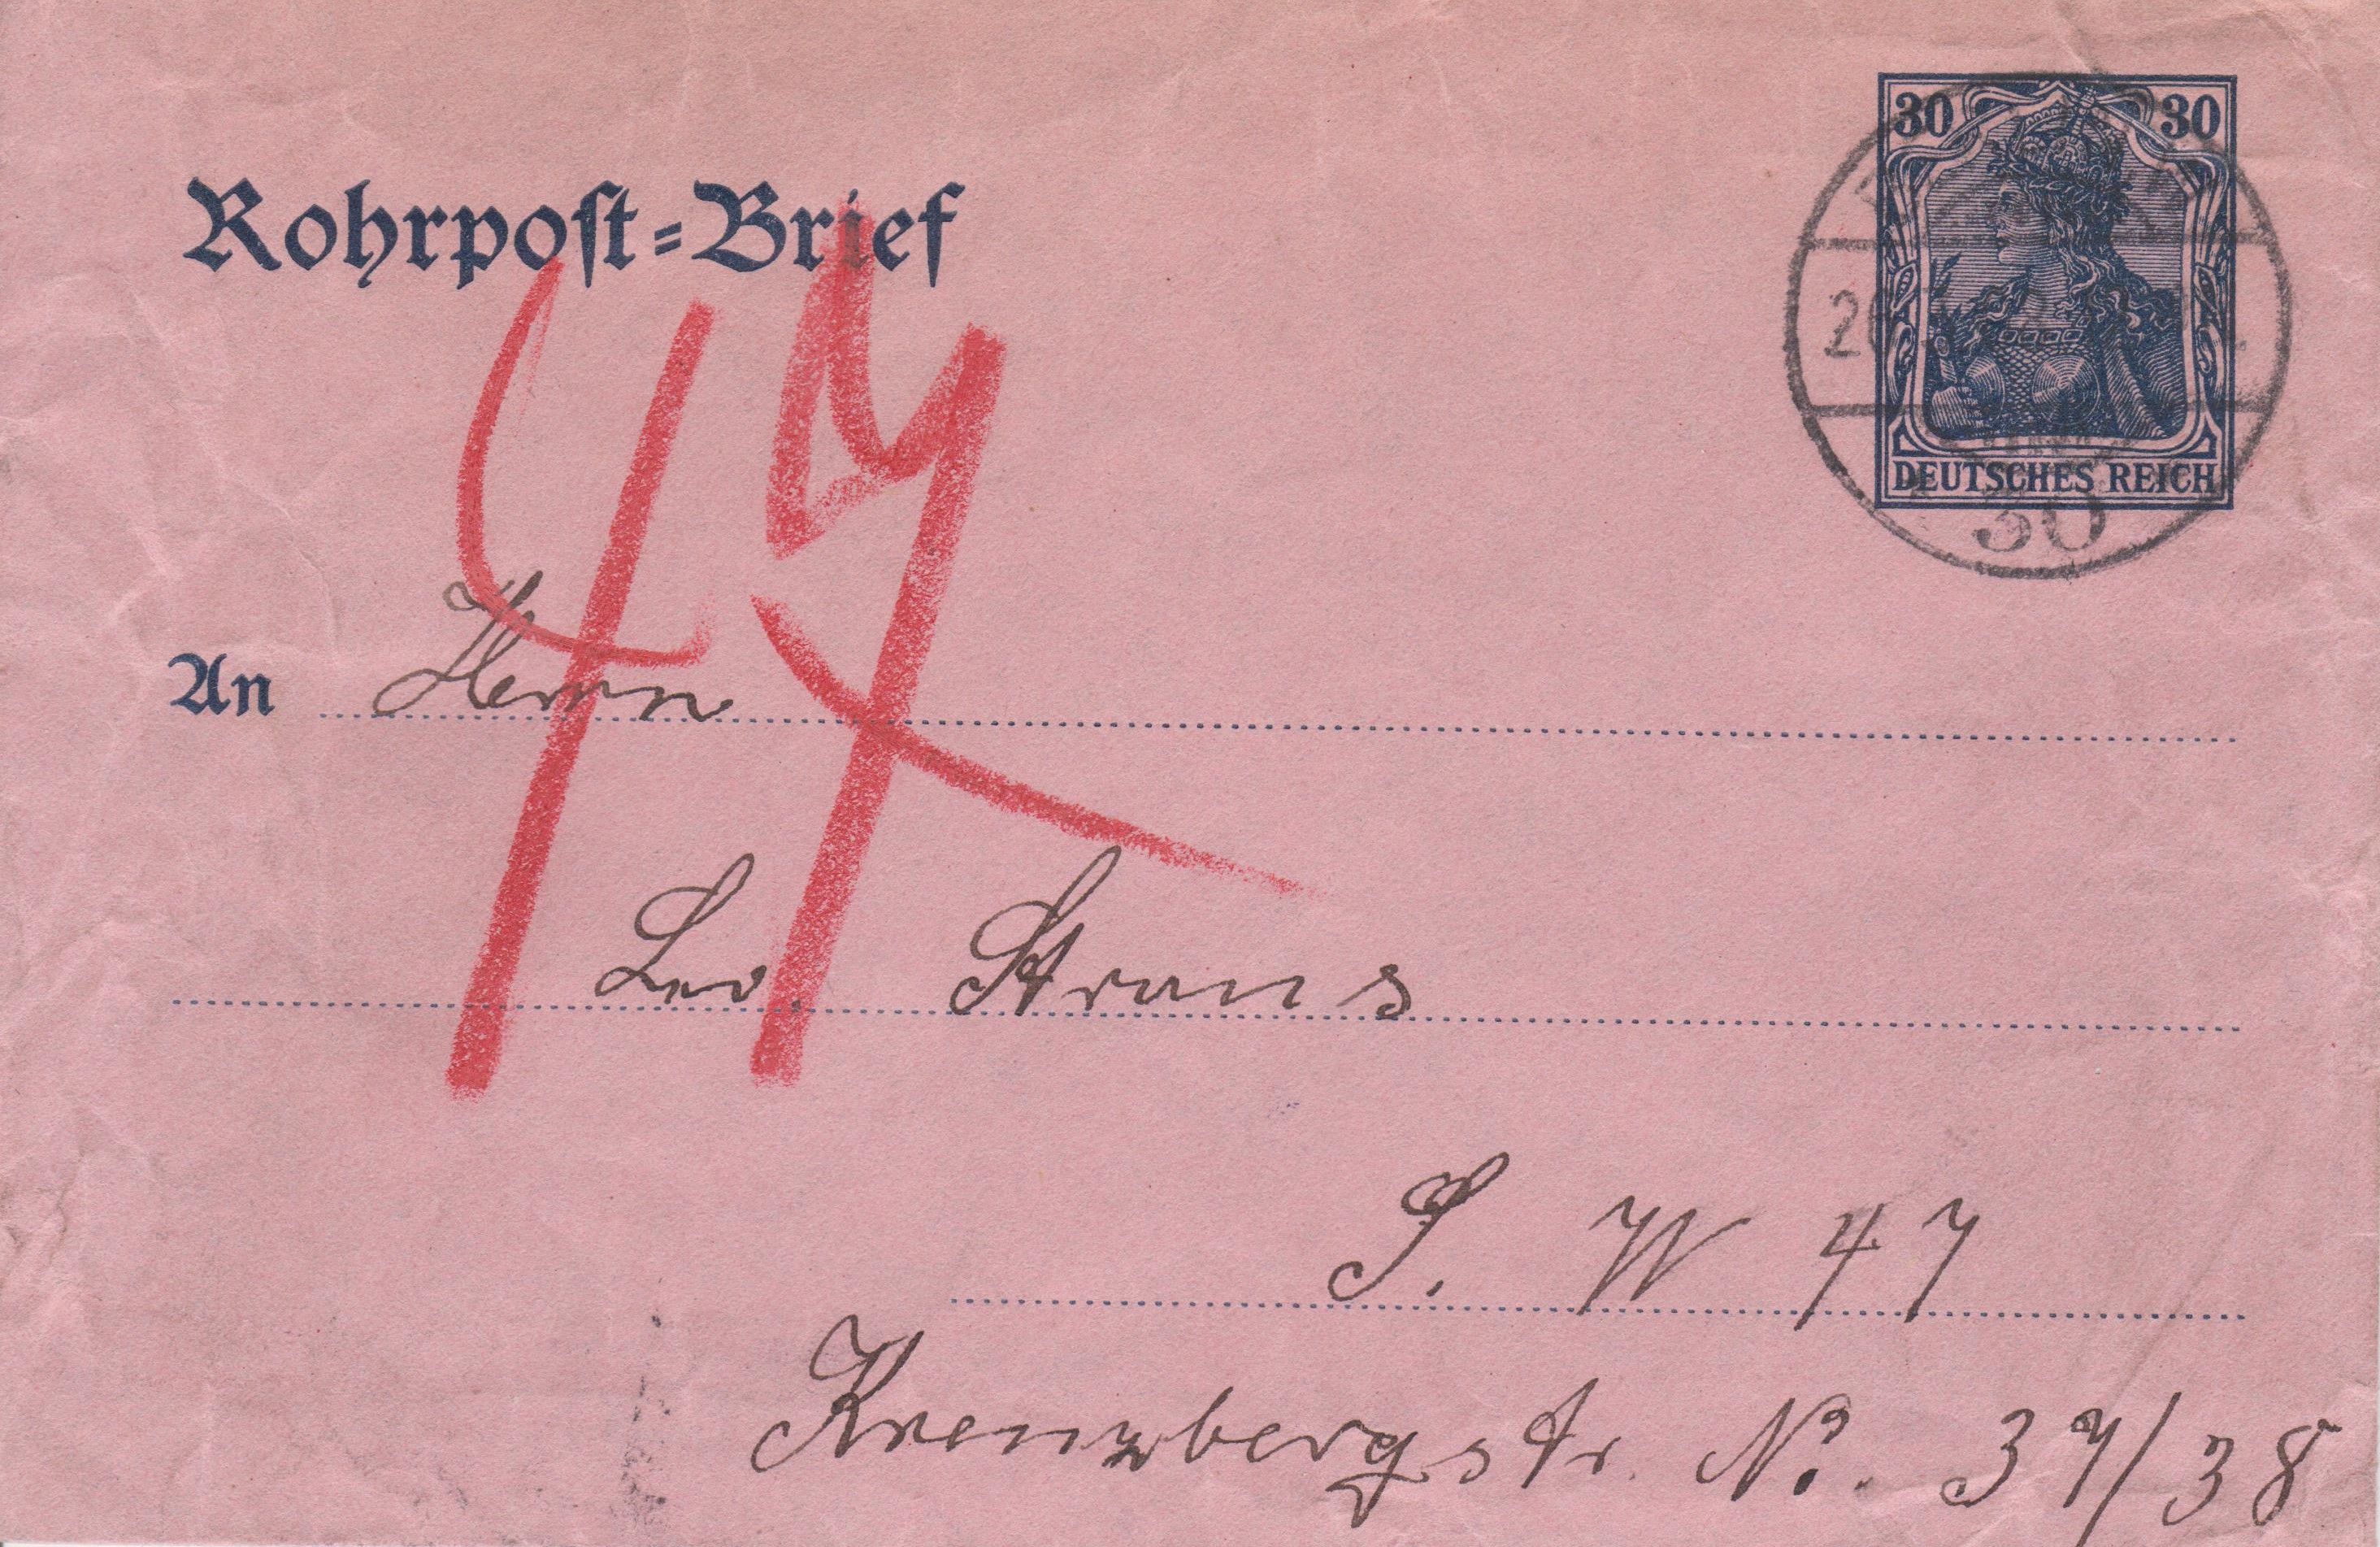 30 30
Rohrpoſt-Brief
DEUTSCHES REICH
30
47
An Herrn
Leo. Straus
S. W 47
Kreuzbergstr. No. 37/38